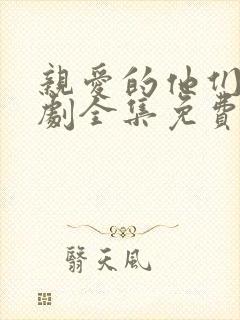 親愛的他们
劇全集免費
翳天風